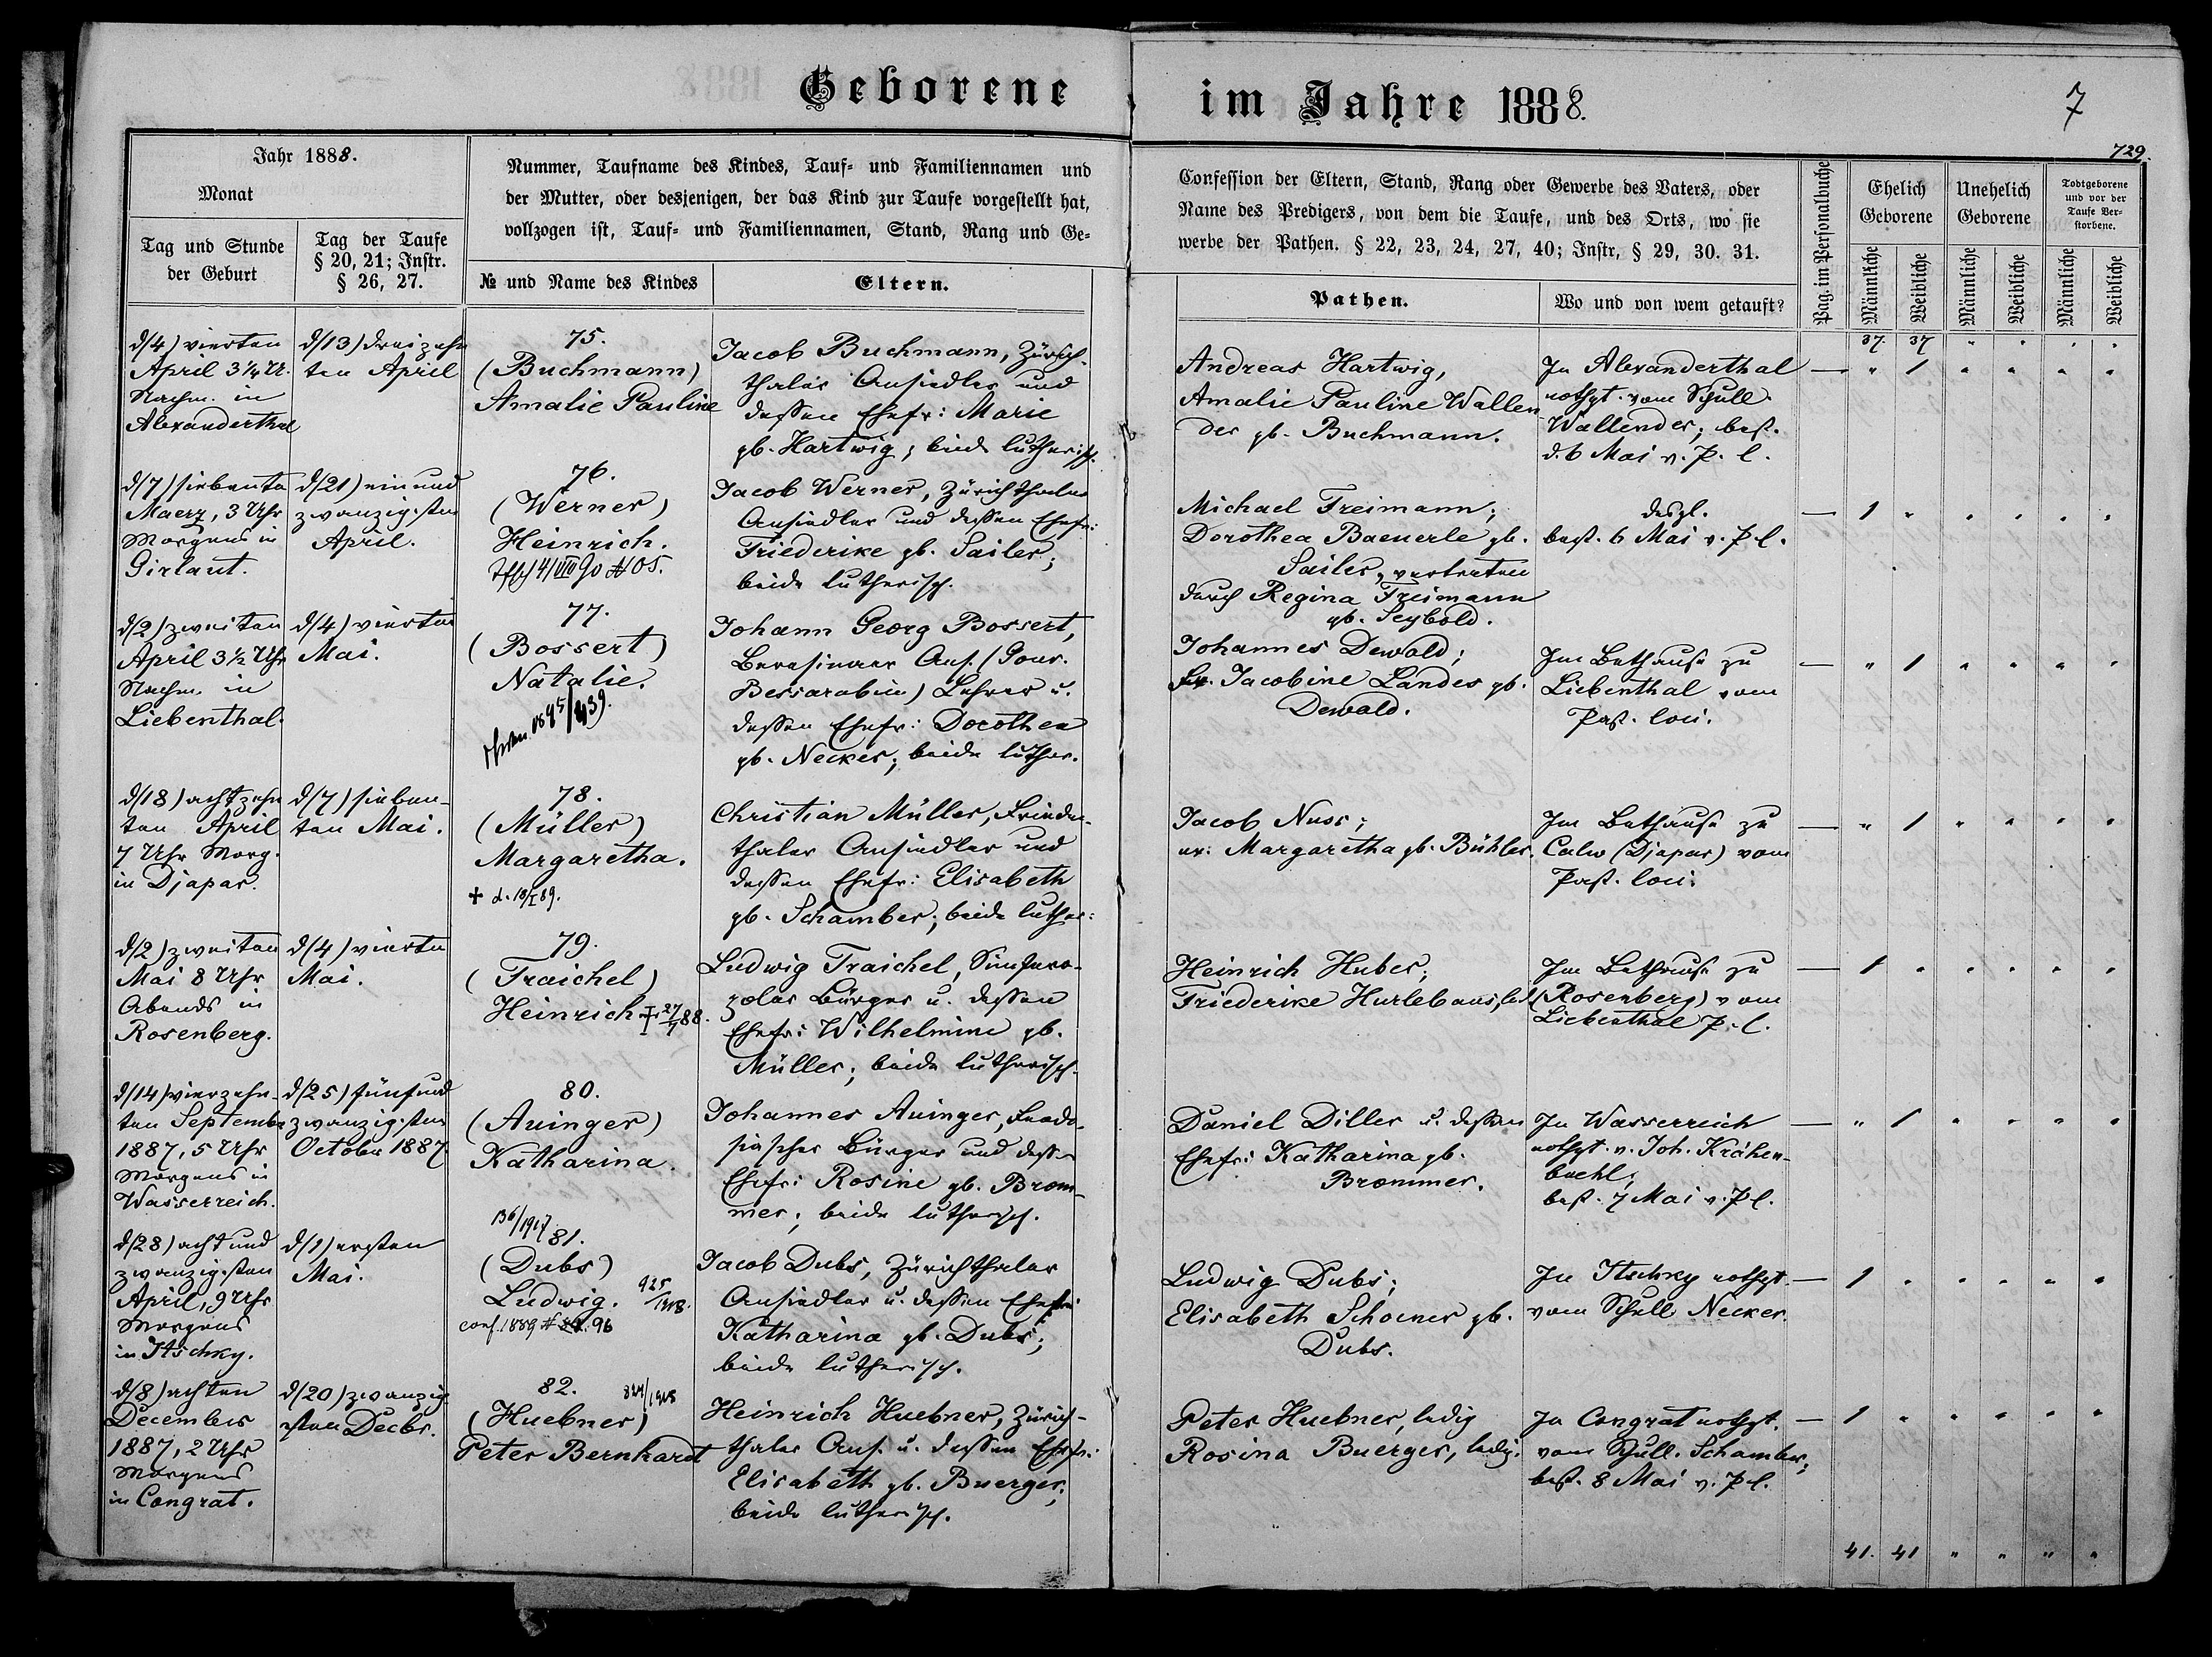 Geborene
im Jahre 1888.
7
729.
Jahr 1888.
Monat
Tag und Stunde
der Geburt
Tag der Taufe
§ 20, 21; Instr.
§ 26, 27.
Nummer, Taufname des Kindes, Tauf- und Familiennamen und
der Mutter, oder desjenigen, der das Kind zur Taufe vorgestellt hat,
vollzogen ist, Tauf- und Familiennamen, Stand, Rang und Ge-
№ und Name des Kindes
Eltern.
Confession der Eltern, Stand, Rang oder Gewerbe des Vaters, oder
Name des Predigers, von dem die Taufe, und des Orts, wo sie
werbe der Pathen. § 22, 23, 24, 27, 40; Instr, § 29, 30. 31.
Pathen.
Wo und von wem getauft?
Pag. im Personalbuche
Ehelich
Geborene
Unehelich
Geborene
Todtgeborene
und vor der
Taufe Ver-
storbene.
Männliche
Weibliche
Männliche
Weibliche
Männliche
Weibliche
37. 37 " " " "
d/4) vierten
April 3¼ U.
Nachm. in
Alexanderthal
d/13) dreizehn
ten April
75.
(Buchmann)
Amalie Pauline
Jacob Buchmann, Zürich-
thaler Ansiedler und
dessen Ehefr: Marie
gb. Hartwig; beide lutherisch.
Andreas Hartwig,
Amalie Pauline Wallen
der gb. Buchmann.
In Alexanderthal
nothgt. vom Schull.
Wallender; best.
d. 6 Mai v. P. l.
— " 1 " " " "
d/7) siebente
Maerz, 3 Uhr
Morgens in
Girlaut.
d/21) ein und
zwanzigsten
April.
76.
(Werner)
Heinrich.
Jacob Werner, Zürichthaler
Ansiedler und dessen Ehefr:
Friederike gb. Sailer;
beide lutherisch.
Michael Freimann;
Dorothea Baeuerle gb.
Sailer, vertreten
durch Regina Freimann
gb. Seybold.
desgl.
best. 6 Mai v. P. l.
— 1 " " " " "
d/2) zweiten
April 3½ Uhr
Nachm. in
Liebenthal.
d/4) vierten
Mai.
77.
(Bossert)
Natalie.
Johann Georg Bossert,
Beresinaer Ans. (Gouv.
Bessarabien) Lehrer u.
dessen Ehefr: Dorothea
gb. Necker; beide luther.
Johannes Dewald;
Jacobine Landes gb.
Dewald.
Im Bethause zu
Liebenthal vom
Past. loci.
— " 1 " " " "
d/18) achtzehn
ten April
7 Uhr Morg.
in Djapar.
d/7) sieben-
ten Mai.
78.
(Müller)
Margaretha.
+ d. 18/I 89.
Christian Müller, Frieden-
thaler Ansiedler und
dessen Ehefr: Elisabeth
gb. Schamber; beide luther:
Jacob Nuss;
ux: Margaretha gb. Bühler.
Im Bethause zu
Calw (Djapar) vom
Past. loci.
— " 1 " " " "
d/2) zweiten
Mai 8 Uhr
Abends in
Rosenberg.
d/4) vierten
Mai.
79.
(Traichel)
Heinrich
Ludwig Traichel, Simfero-
poler Bürger u. dessen
Ehefr: Wilhelmine gb.
Müller; beide lutherisch.
Heinrich Huber;
Friederike Hurlebaus, led.
Im Bethause zu
(Rosenberg) vom
Liebenthal P. l.
— 1 " " " " "
d/14) vierzehn-
ten September
1887, 5 Uhr
Morgens in
Wasserreich.
d/25) fünfund
zwanzigsten
October 1887.
80.
(Auinger)
Katharina.
Johannes Auinger, Feodo-
siascher Bürger und dessen
Ehefr: Rosine gb. Brom-
mer; beide lutherisch.
Daniel Diller u. dessen
Ehefr: Katharina gb.
Brommer.
In Wasserreich
nothgt. v. Joh. Krähen-
buehl;
best. 7 Mai v. P. l.
— " 1 " " " "
d/28) acht und
zwanzigsten
April, 9 Uhr
Morgens
in Itschky.
d/1) ersten
Mai.
136/1917
81.
(Dubs)
Ludwig.
925/1918.
Jacob Dubs, Zürichthaler
Ansiedler u. dessen Ehefr:
Katharina gb. Dubs;
beide lutherisch.
Ludwig Dubs;
Elisabeth Schoener gb.
Dubs.
In Itschky nothgt.
vom Schull. Necker.
— 1 " " " " "
d/8) achten
December
1887, 2 Uhr
Morgens
in Congrat.
d/20) zwanzig
sten Decbr.
82.
(Huebner)
Peter Bernhardt
Heinrich Huebner, Zürich-
thaler Ans. u. dessen Ehefr:
Elisabeth gb. Buerger;
beide lutherisch.
Peter Huebner, ledig
Rosina Buerger, ledig.
In Congrat nothgt.
vom Schull. Schamber;
best. 8 Mai v. P. l.
— 1 " " " " "
41. 41 " " " "